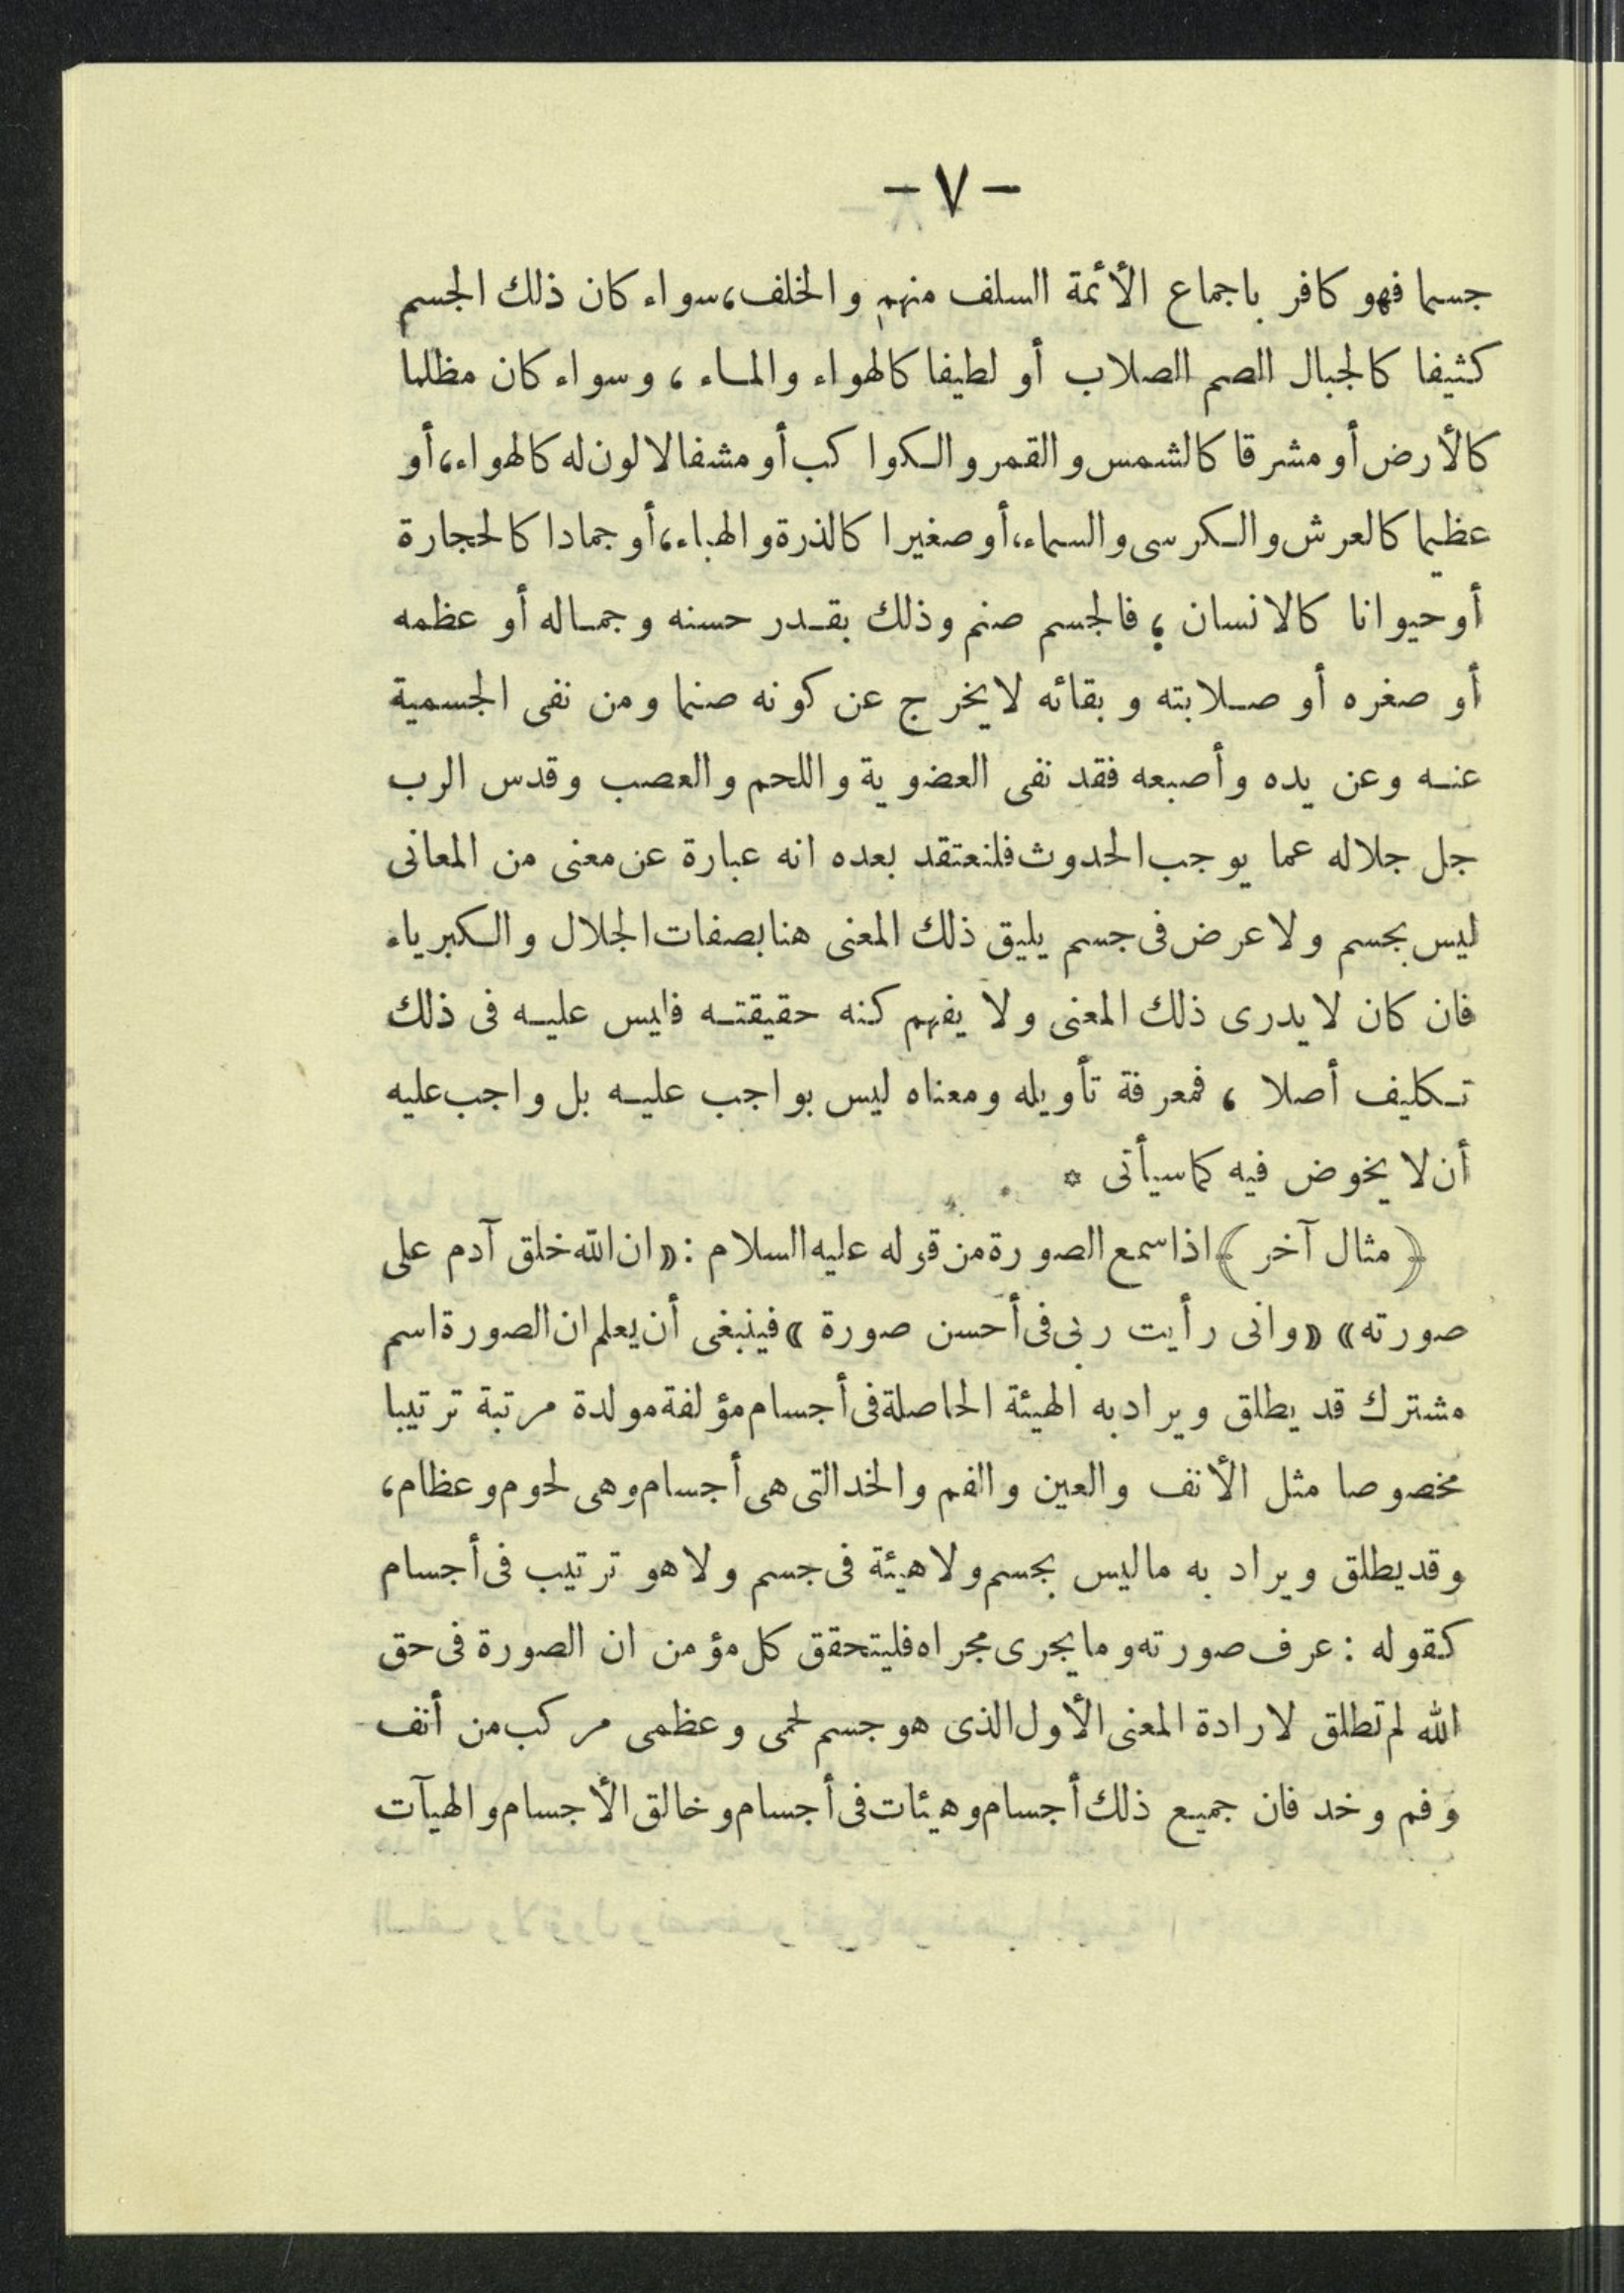 - ٧ -
جسما فهو كافر باجماع الأئمة السلف منهم والخلف، سواء كان ذلك الجسم
كثيفا كالجبال الصم الصلاب أو لطيفا كالهواء والماء ، وسواء كان مظلما
كالأرض أو مشرقا كالشمس والقمر والكواكب أو مشفا لا لون له كالهواء، أو
عظيما كالعرش والكرسى والسماء، أو صغيرا كالذرة والهباء، أو جمادا كالحجارة
أو حيوانا كالانسان ؛ فالجسم صنم وذلك بقدر حسنه وجماله أو عظمه
أو صغره أو صلابته وبقائه لا يخرج عن كونه صنما ومن نفى الجسمية
عنه وعن يده وأصبعه فقد نفى العضوية واللحم والعصب وقدس الرب
جل جلاله عما يوجب الحدوث فلنعتقد بعده انه عبارة عن معنى من المعانى
ليس بجسم ولا عرض فى جسم يليق ذلك المعنى هنا بصفات الجلال والكبرياء
فان كان لا يدرى ذلك المعنى ولا يفهم كنه حقيقته فليس عليه فى ذلك
تكليف أصلا ، فمعرفة تأويله ومعناه ليس بواجب عليه بل واجب عليه
أن لا يخوض فيه كما سيأتى *
﴿ مثال آخر ﴾ اذا سمع الصورة من قوله عليه السلام : «ان الله خلق آدم على
صورته» «وانى رأيت ربى فى أحسن صورة » فينبغى أن يعلم ان الصورة اسم
مشترك قد يطلق ويراد به الهيئة الحاصلة فى أجسام مؤلفة مولدة مرتبة ترتيبا
مخصوصا مثل الأنف والعين والفم والخد التى هى أجسام وهى لحوم وعظام،
وقد يطلق ويراد به ما ليس بجسم ولا هيئة فى جسم ولا هو ترتيب فى أجسام
كقوله : عرف صورته وما يجرى مجراه فليتحقق كل مؤمن ان الصورة فى حق
الله لم تطلق لارادة المعنى الأول الذى هو جسم لحمى وعظمى مركب من أنف
وفم وخد فان جميع ذلك أجسام وهيئات فى أجسام وخالق الأجسام والهيآت